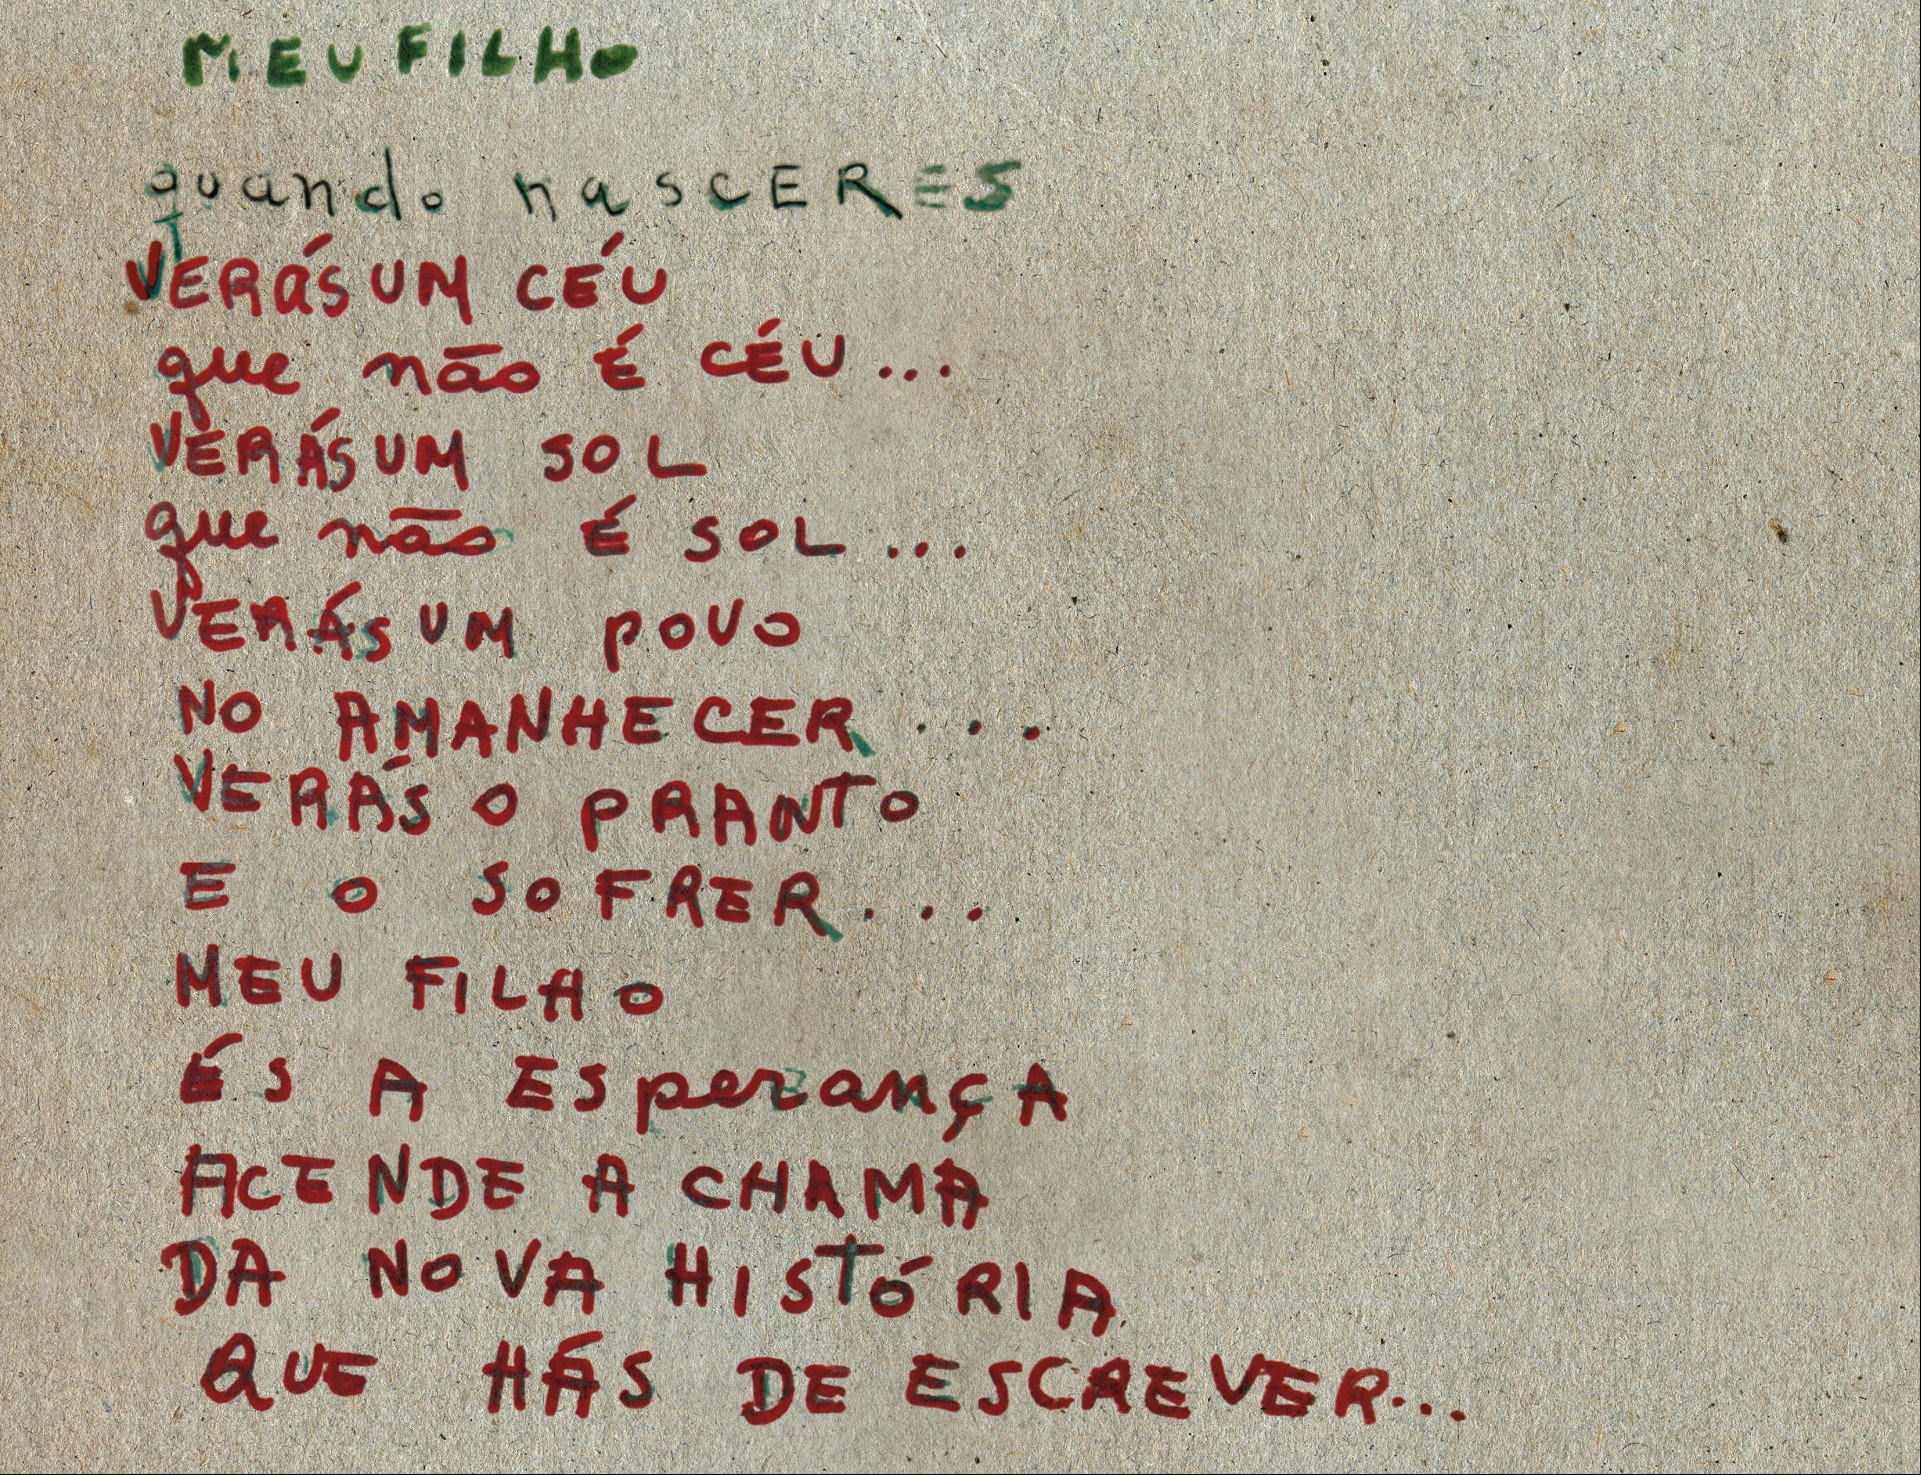 MEU FILHO
quando nasCERES
VERÁS UM CÉU
que não É CÉU...
VERÁS UM SOL
que não É SOL...
VERÁS UM POVO
NO AMANHECER...
VERÁS O PRANTO
E O SOFRER...
MEU FILHO
ÉS A ESperançA
ACENDE A CHAMA
DA NOVA HISTÓRIA
QUE HÁS DE ESCREVER...